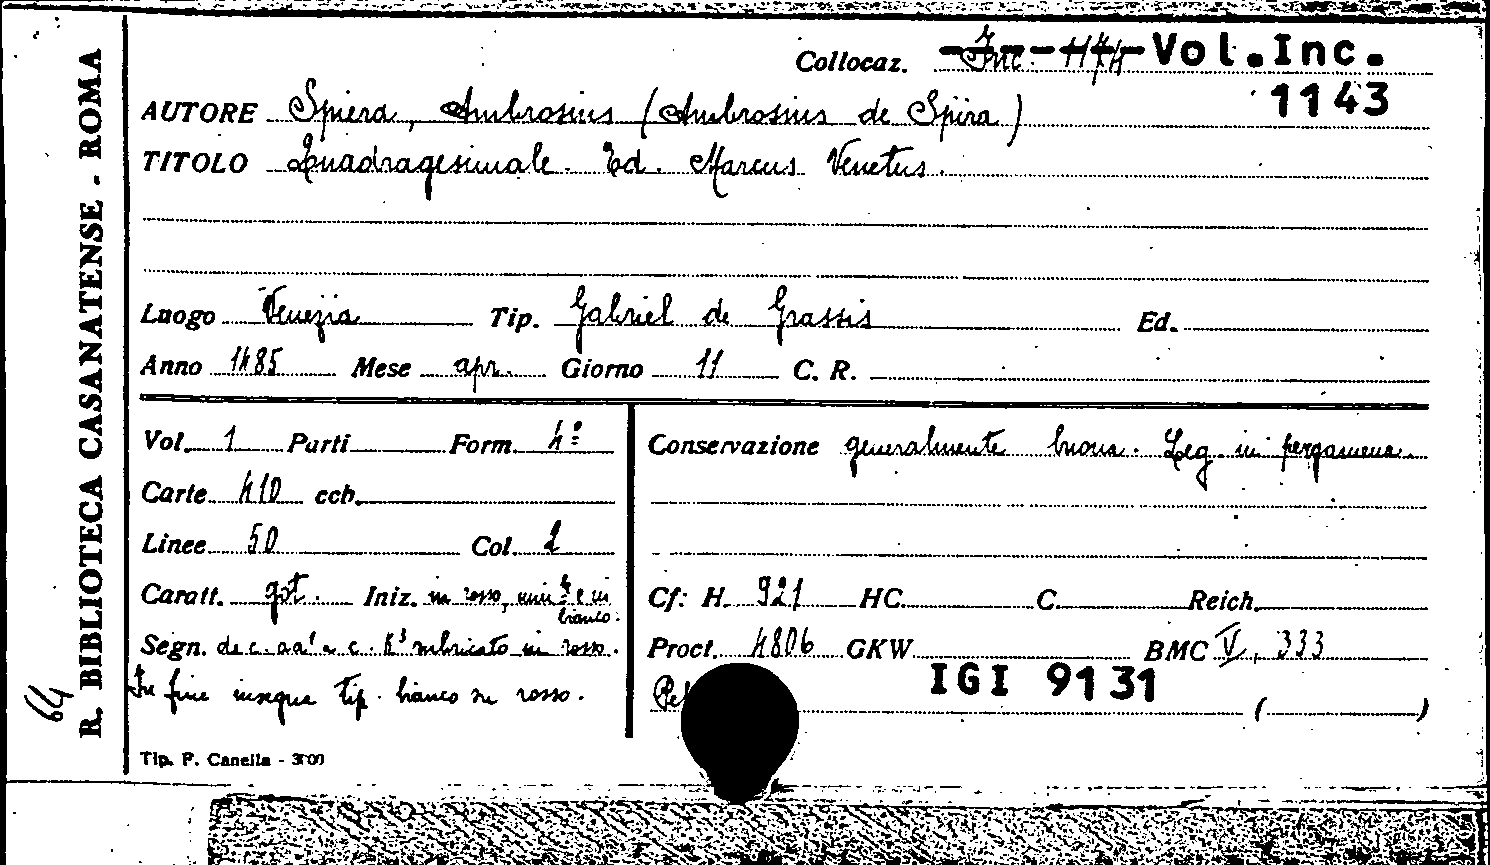 Collocaz. Inc. 474 Vol.Inc.
1143
AUTORE Spiera, Ambrosius (Ambrosius de Spira)
TITOLO Quadragesimale. Ed. Marcus Venetus.
Luogo Venezia Tip. Gabriel de Grassis Ed.
Anno 1485 Mese apr. Giorno 11 C. R.
Vol. 1 Parti Form. 4º
Carte 410 ccb.
Linee 50 Col. 2
Caratt. got. Iniz. in rosso, min. e in
bianco.
Segn. de c. aa¹ a c. K³ rubricato in rosso.
In fine insegna tip. bianco su rosso.
Conservazione generalmente buona. Leg. in pergamena.
Cf: H. 921 HC. C. Reich.
Proct. 4806 GKW BMC V, 333
IGI 9131 ( )
Tip. F. Canella - 3700
R. BIBLIOTECA CASANATENSE - ROMA
64